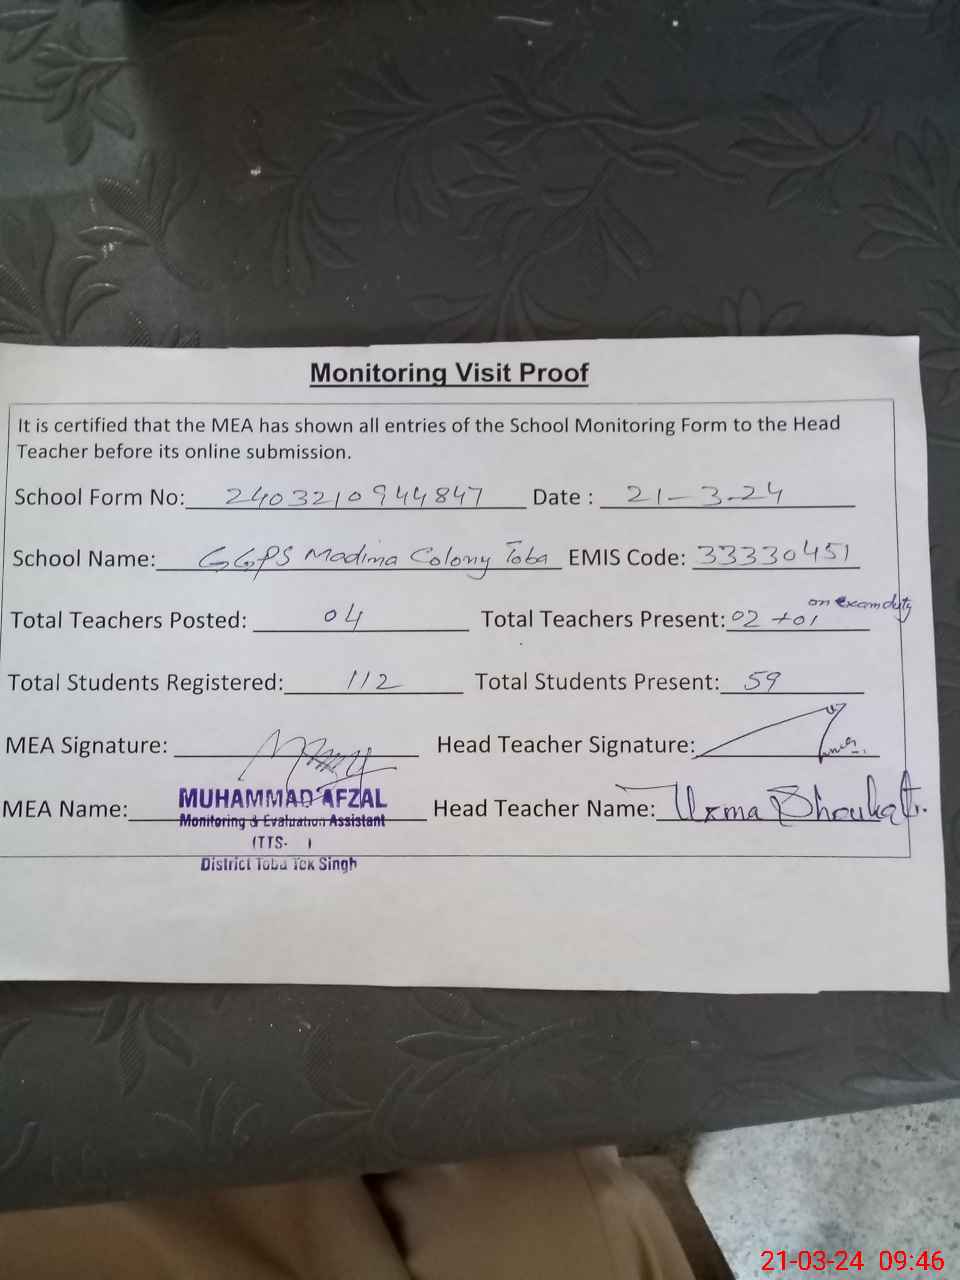 Monitoring Visit Proof
It is certified that the MEA has shown all entries of the School Monitoring Form to the Head
Teacher before its online submission.
School Form No: 2403210944847 Date : 21-3-24
School Name: GGPS Madina Colony Toba EMIS Code: 33330451
on exam duty
Total Teachers Posted: 04 Total Teachers Present: 02 +01
Total Students Registered: 112 Total Students Present: 59
MEA Signature: Head Teacher Signature:
MEA Name: MUHAMMAD AFZAL Head Teacher Name: Uzma Shoukat.
Monitoring & Evaluation Assistant
(TTS- )
District Toba Tek Singh
21-03-24 09:46